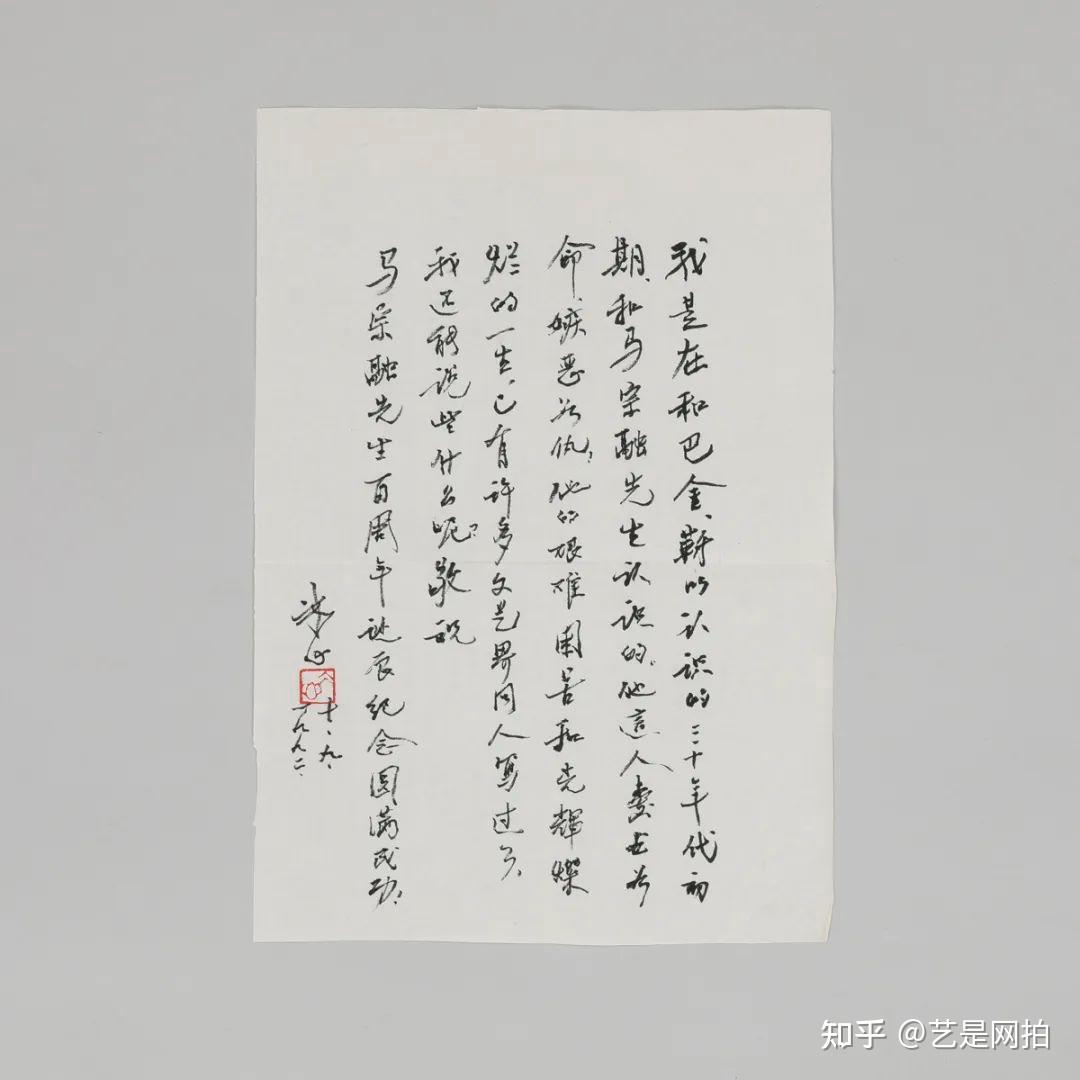 我是在和巴金、靳以认识的三十年代初
期、和马宗融先生认识的。他這人爱如
命、嫉恶如仇；他的艰难困苦和光輝燦
烂的一生、已有许多文艺界同人写过了、
我还能说些什么呢？敬祝
马宗融先生百周年诞辰纪念圆满成功！
十、九、
一九九二、
知乎 @艺是网拍